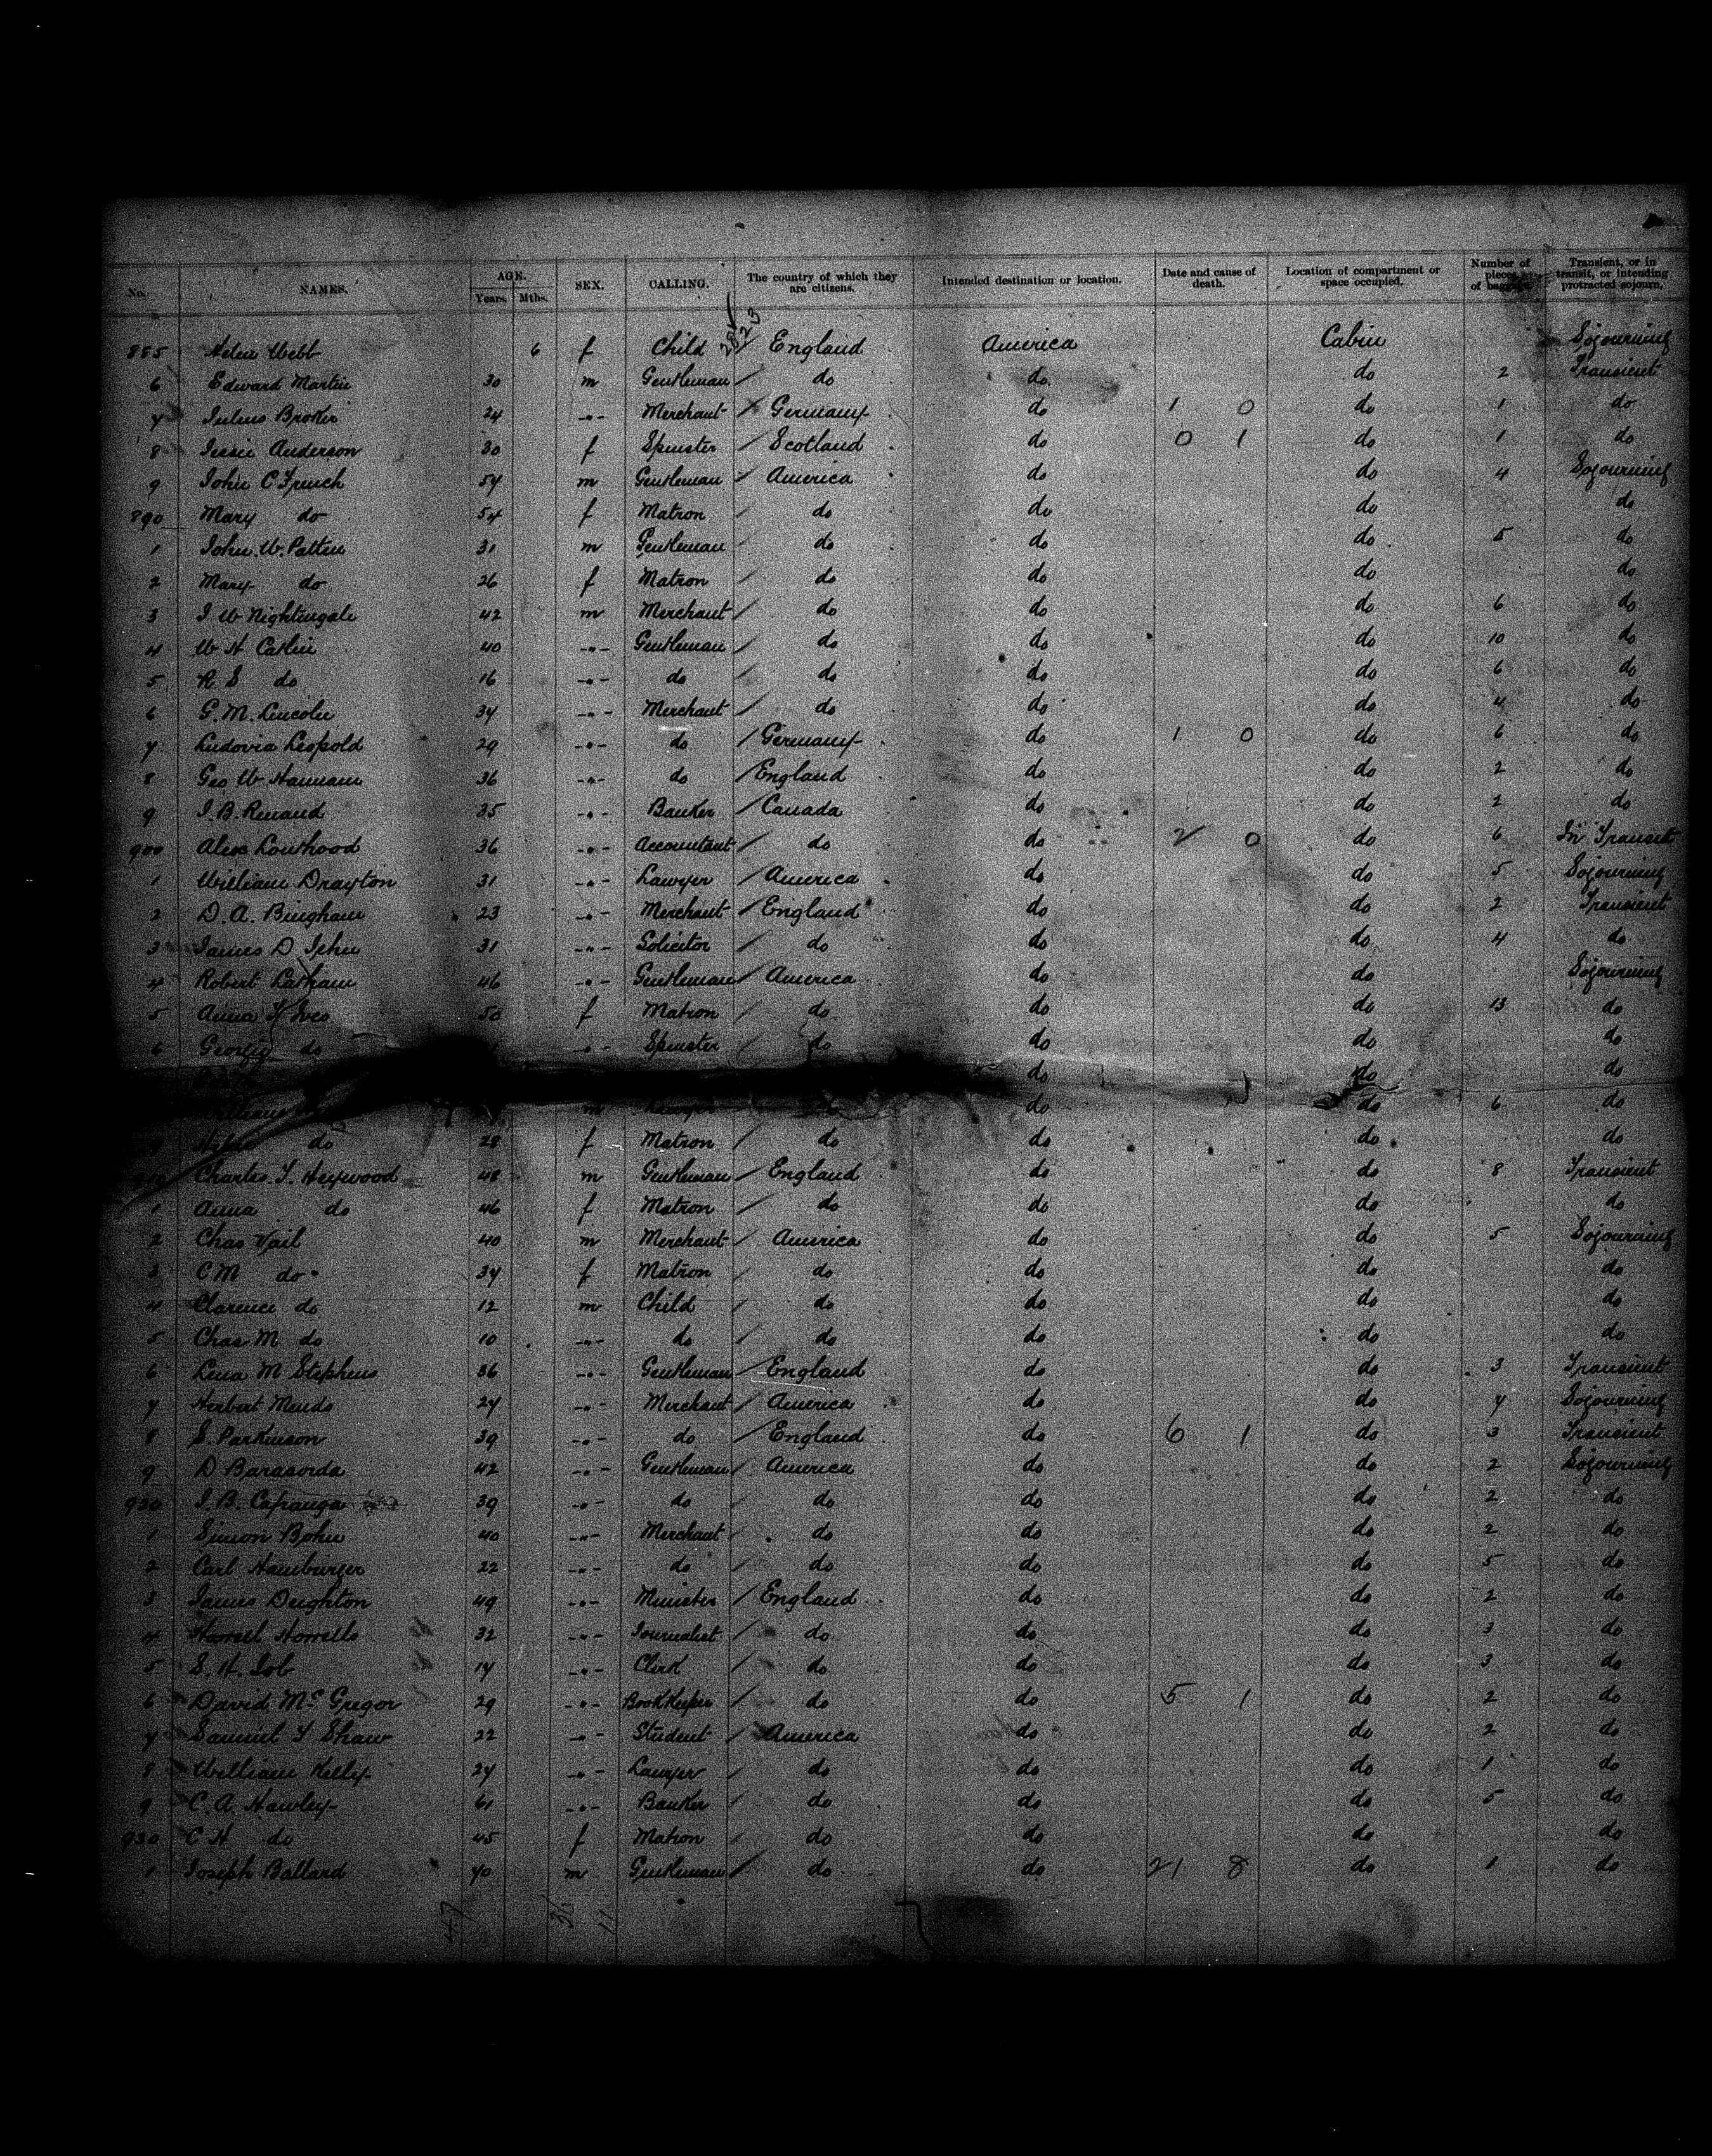 No. NAMES. AGE. Years. Mths. SEX. CALLING. The country of which they are citizens. Intended destination or location. Date and cause of death. Location of compartment or space occupied. Number of pieces of baggage. Transient, or in transit, or intending protracted sojourn.
885 Helen Webb 6 f Child England America Cabin Sojourning
6 Edward Martin 30 m Gentleman do do do 2 Transient
7 Julius 24 -"- Merchant Germany do 1 0 do 1 do
8 Jessie Anderson 30 f Spinster Scotland do 0 1 do 1 do
9 John C French 54 m Gentleman America do do 4 Sojourning
890 Mary do 54 f Matron do do do do
1 John W. Patten 31 m Gentleman do do do 5 do
2 Mary do 26 f Matron do do do do
3 J W Nightingale 42 m Merchant do do do 6 do
4 W H Catlin 40 -"- Gentleman do do do 10 do
5 R S do 16 -"- do do do do 6 do
6 G. M. Lincoln 34 -"- Merchant do do do 4 do
7 Leopold 29 -"- do Germany do 1 0 do 6 do
8 Geo W Hannam 36 -"- do England do do 2 do
9 J. B. Renaud 35 -"- Banker Canada do do 2 do
900 Alex 36 -"- Accountant do do 2 0 do 6 In Transit
1 William Drayton 31 -"- Lawyer America do do 5 Sojourning
2 D. A. Bingham 23 -"- Merchant England do do 2 Transient
3 James D John 31 -"- Solicitor do do do 4 do
4 Robert Latham 46 -"- Gentleman America do do Sojourning
5 Anna Ives 50 f Matron do do do 13 do
6 do -"- Spinster do do do do
do do do
William m Lawyer do do 6 do
do 28 f Matron do do do do
Charles T. Heywood 48 m Gentleman England do do 8 Transient
1 Anna do 46 f Matron do do do do
2 Chas Vail 40 m Merchant America do do 5 Sojourning
3 C M do 34 f Matron do do do do
4 Clarence do 12 m Child do do do do
5 Chas M. do 10 -"- do do do do do
6 Lena M Stephens 36 -"- Gentleman England do do 3 Transient
7 Herbert 24 -"- Merchant America do do 7 Sojourning
8 S. Parkinson 39 -"- do England do 6 1 do 3 Transient
9 D 42 -"- Gentleman America do do 2 Sojourning
920 J. B. 39 -"- do do do do 2 do
1 Simon Bohn 40 -"- Merchant do do do 2 do
2 Carl Hamburger 22 -"- do do do do 5 do
3 James Deighton 49 -"- Minister England do do 2 do
4 32 -"- Journalist do do do 3 do
5 S. H. Job -"- Clerk do do do 3 do
6 David McGregor 29 -"- Bookkeeper do do 5 1 do 2 do
7 Samuel T Shaw 22 -"- Student America do do 2 do
8 William Kelly 24 -"- Lawyer do do do 1 do
9 C. A. Hawley 61 -"- Banker do do do 5 do
930 C H do 45 f Matron do do do do
1 Joseph Ballard 70 m Gentleman do do 21 8 do 1 do
47 11